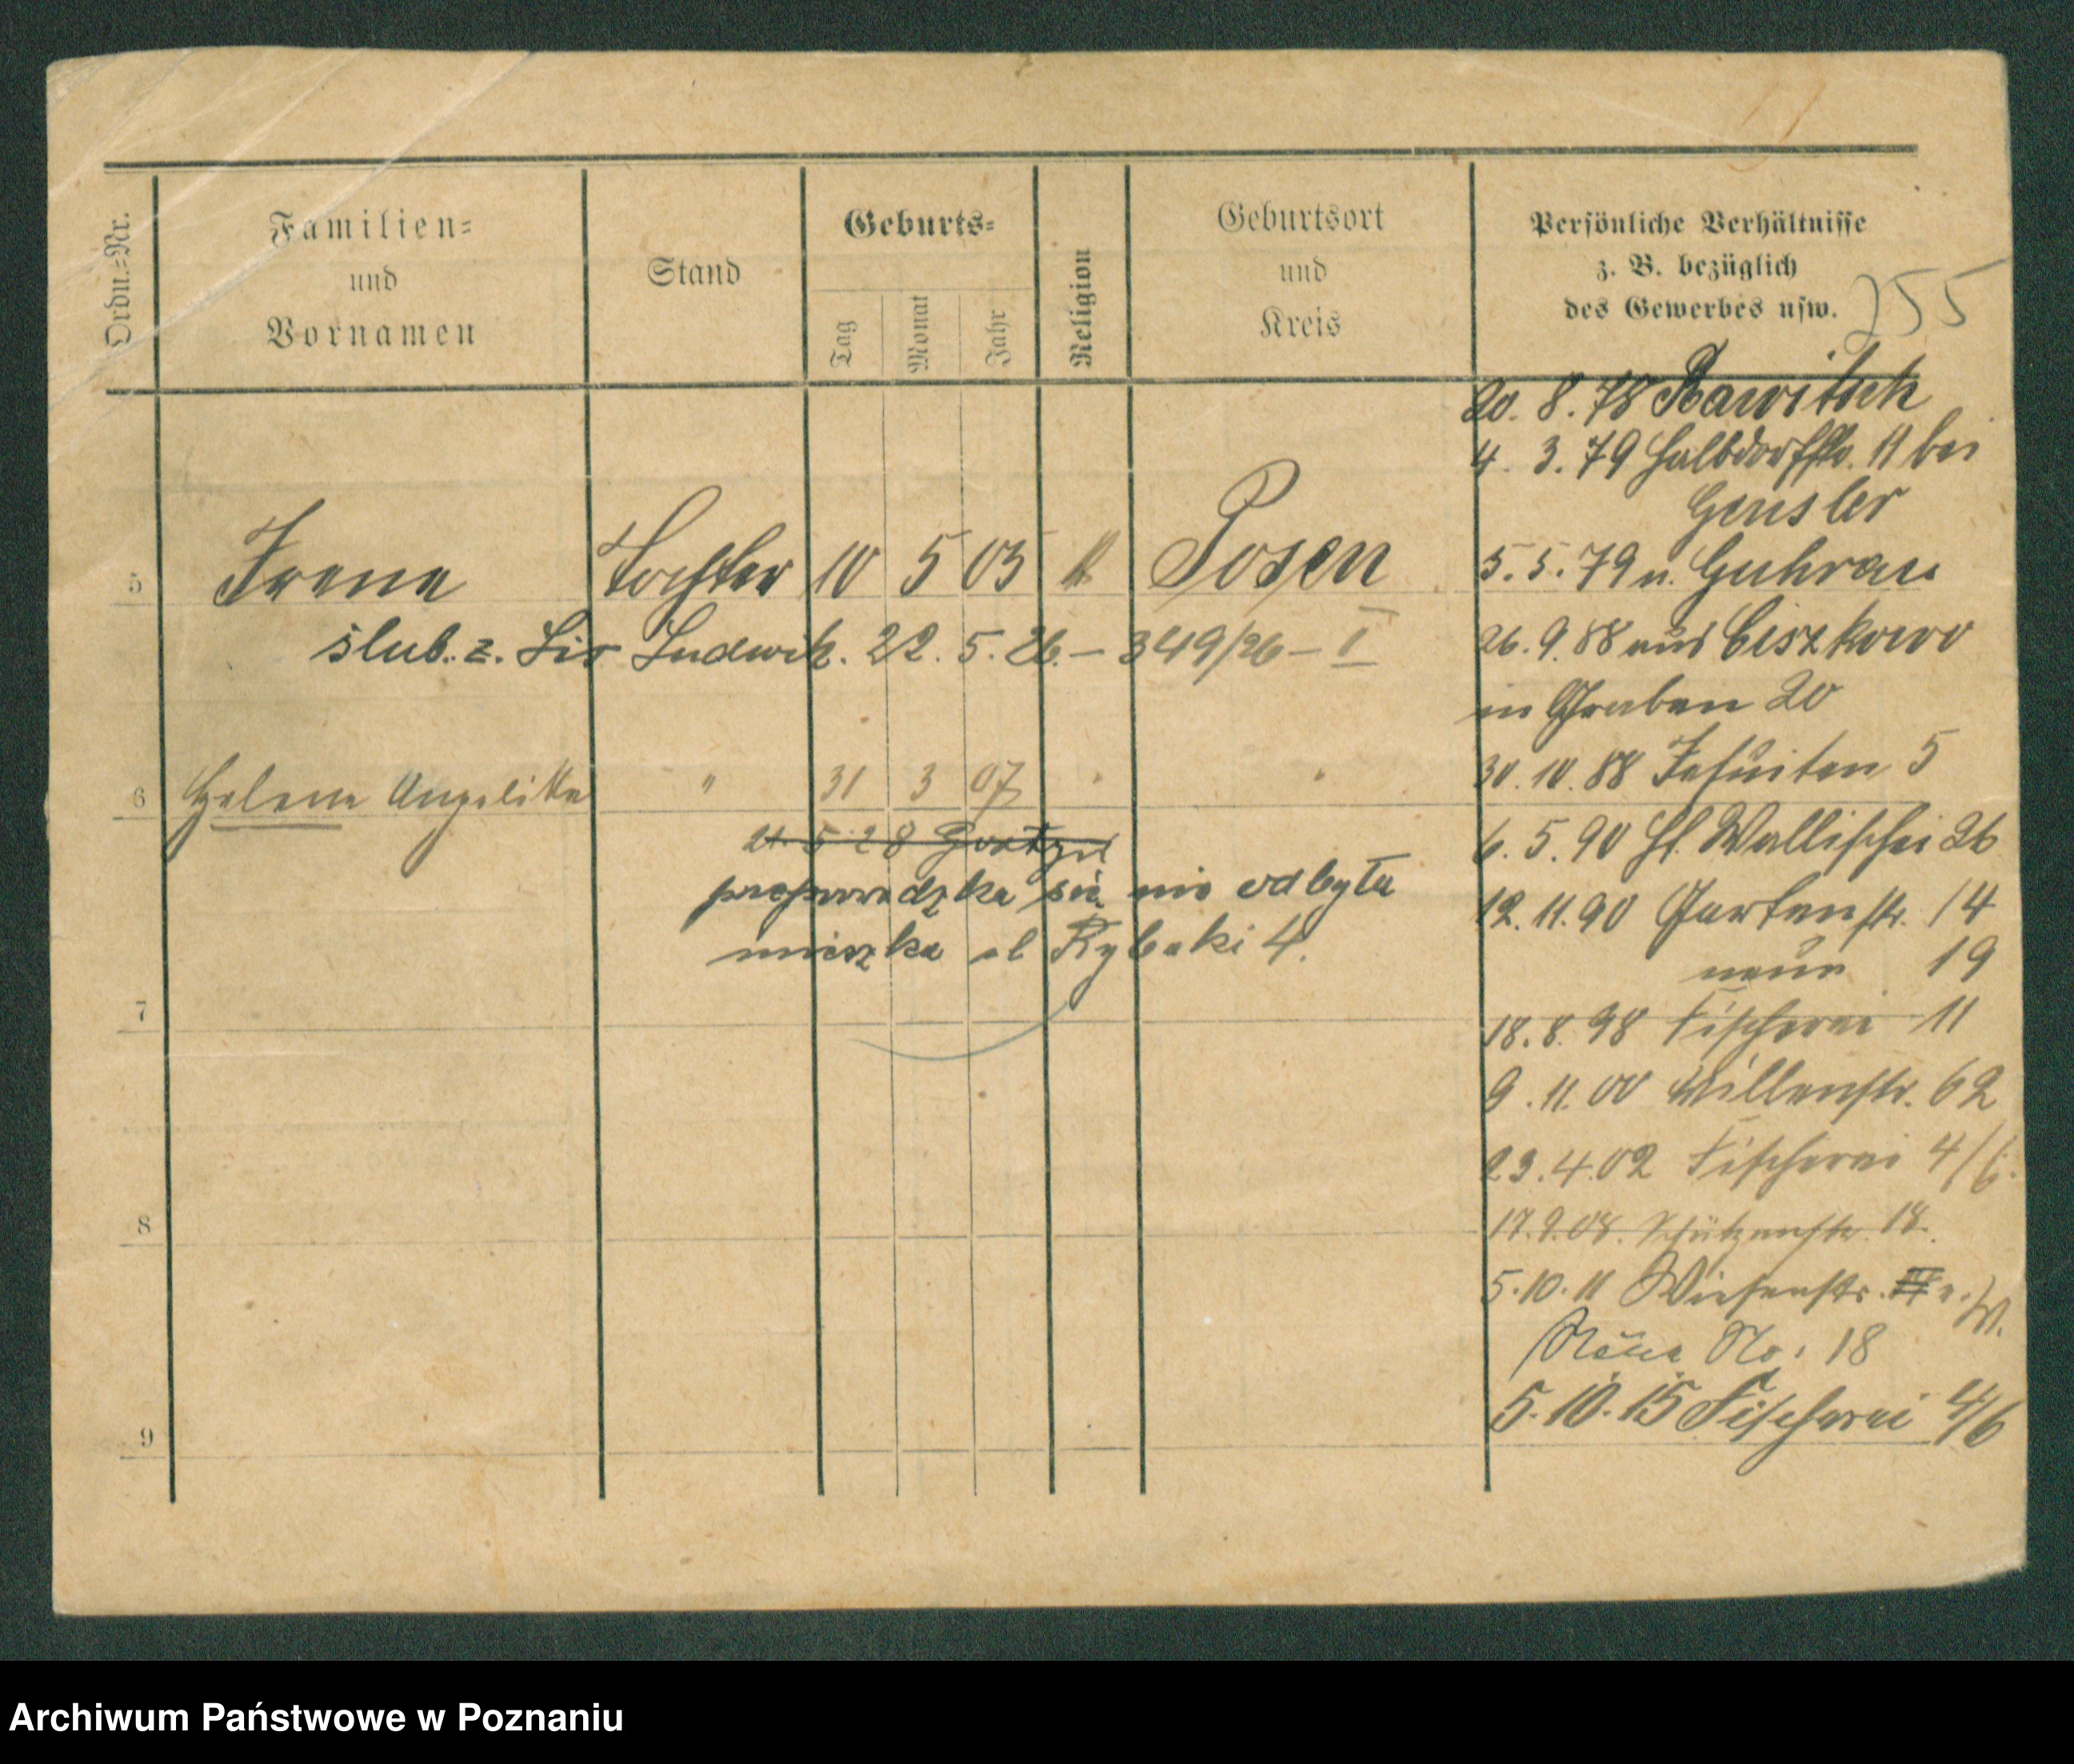 255
Ordn.-Nr.
Familien-
und
Vornamen
Stand
Geburts-
Tag
Monat
Jahr
Religion
Geburtsort
und
Kreis
Persönliche Verhältnisse
z. B. bezüglich
des Gewerbes usw.
5 Irene Tochter 10 5 05 k Posen
ślub. z. Lis Ludwik. 22. 5. 26. – 349/26 – I
6 Helene Angelika " 31 3 07 " "
21. 5 28 Gostyń
przeprowadzka się nie odbyła
mieszka ul Rybaki 4.
7
8
9
20. 8. 78 Rawitsch
4. 3. 79 Halbdorfstr. 11 bei
Gensler
5. 5. 79 n. Guhrau
26. 9. 88 aus Ciszkowo
in Graben 20
30. 10. 88 Jesuiten 5
6. 5. 90 Kl. Wallischei 26
12. 11. 90 Gartenstr. 14
neue 19
18. 8. 98 Fischerei 11
9. 11. 00 Millenstr. 62
23. 4. 02 Fischerei 4/6.
17. 9. 08. Schützenstr. 18.
5. 10. 11 Wiesenstr.
Neue No: 18
5. 10. 15 Fischerei 4/6
Archiwum Państwowe w Poznaniu